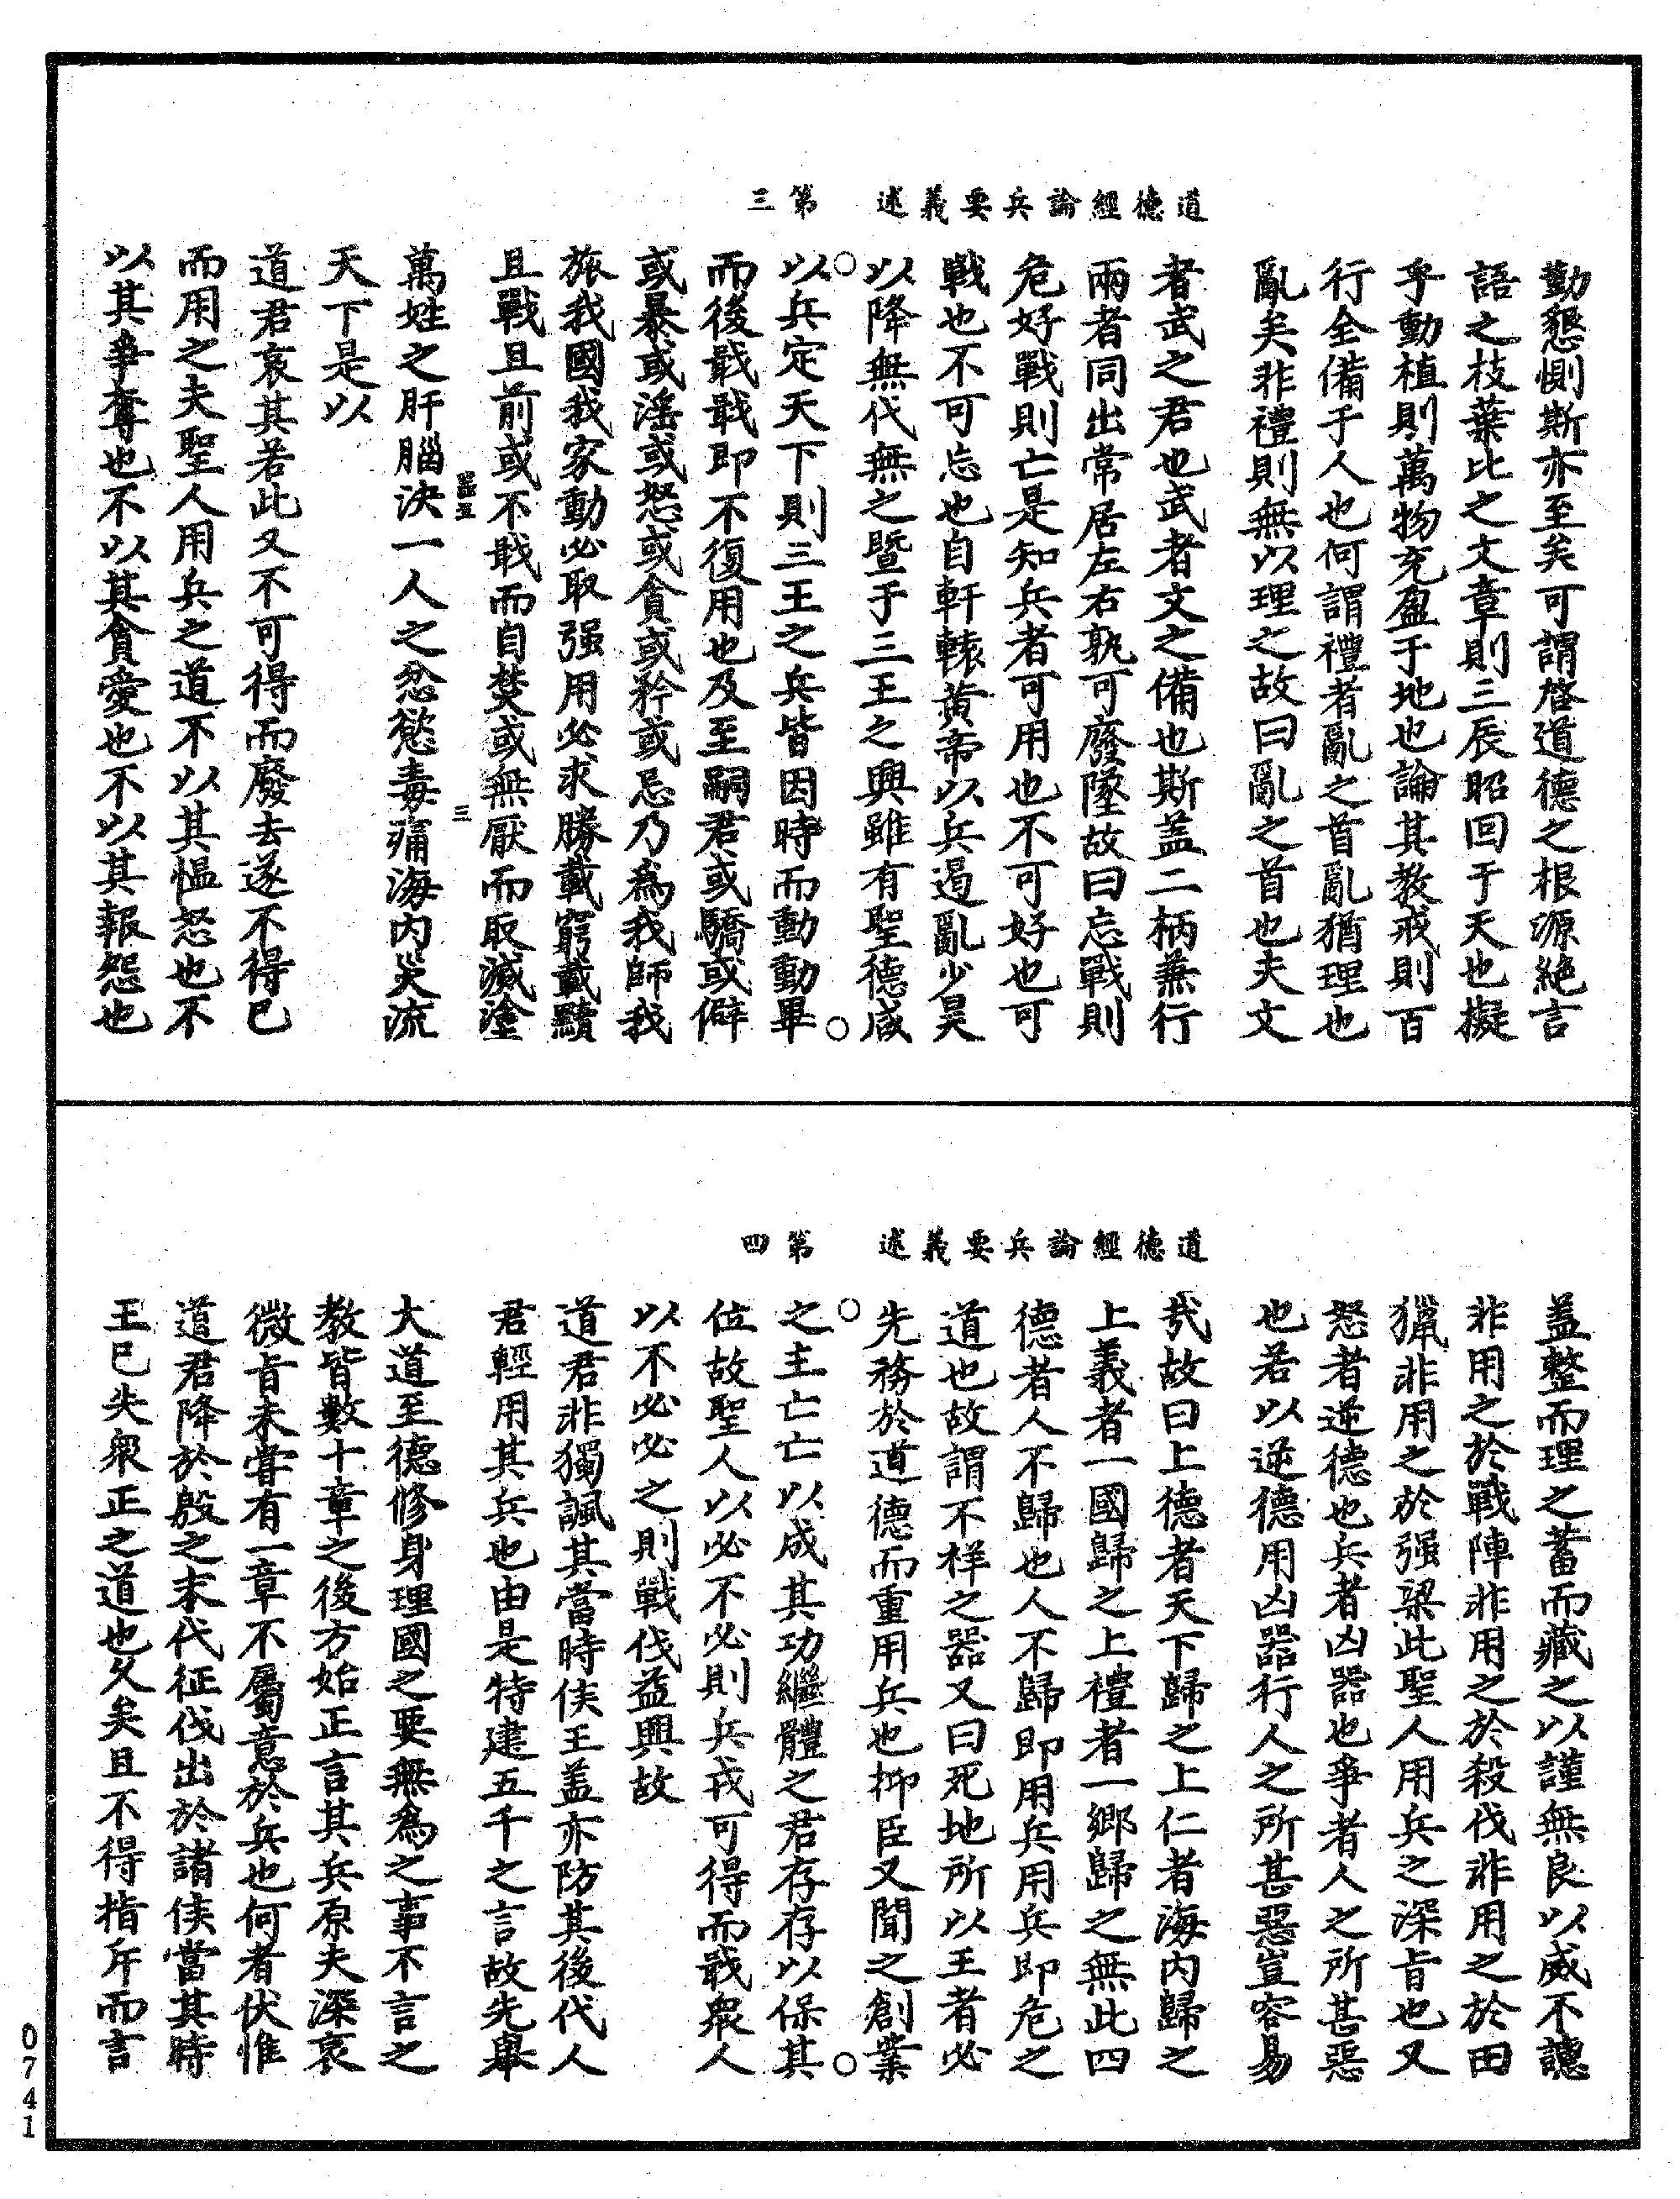 道德經論兵要義述　第三
勤懇惻斯亦至矣可謂啓道德之根源絶言
語之枝葉比之文章則三辰昭回于天也擬
乎動植則萬物充盈于地也論其教戒則百
行全備于人也何謂禮者亂之首亂猶理也
亂矣非禮則無以理之故曰亂之首也夫文
者武之君也武者文之備也斯盖二柄兼行
兩者同出常居左右孰可廢墜故曰忘戰則
危好戰則亡是知兵者可用也不可好也可
戰也不可忘也自軒轅黄帝以兵遏亂少昊
以降無代無之暨于三王之興雖有聖德咸
以兵定天下則三王之兵皆因時而動動畢
而後戢戢即不復用也及至嗣君或驕或僻
或暴或淫或怒或貪或矜或忌乃為我師我
旅我國我家動必取强用必求勝載窮載黷
且戰且前或不戢而自焚或無厭而取滅塗
萬姓之肝腦決一人之忿慾毒痡海内災流
天下是以
道君哀其若此又不可得而廢去遂不得已
而用之夫聖人用兵之道不以其愠怒也不
以其爭奪也不以其貪愛也不以其報怨也
道德經論兵要義述　第四
盖整而理之蓄而藏之以謹無良以威不譓
非用之於戰陣非用之於殺伐非用之於田
獵非用之於强梁此聖人用兵之深旨也又
怒者逆德也兵者凶器也爭者人之所甚惡
也若以逆德用凶器行人之所甚惡豈容易
哉故曰上德者天下歸之上仁者海内歸之
上義者一國歸之上禮者一鄉歸之無此四
德者人不歸也人不歸即用兵用兵即危之
道也故謂不祥之器又曰死地所以王者必
先務於道德而重用兵也抑臣又聞之創業
之主亡亡以成其功繼體之君存存以保其
位故聖人以必不必則兵戎可得而戢衆人
以不必必之則戰伐益興故
道君非獨諷其當時侯王盖亦防其後代人
君輕用其兵也由是特建五千之言故先舉
大道至德修身理國之要無為之事不言之
教皆數十章之後方始正言其兵原夫深哀
微旨未嘗有一章不屬意於兵也何者伏惟
道君降於殷之末代征伐出於諸侯當其時
王已失衆正之道也久矣且不得指斥而言
0741